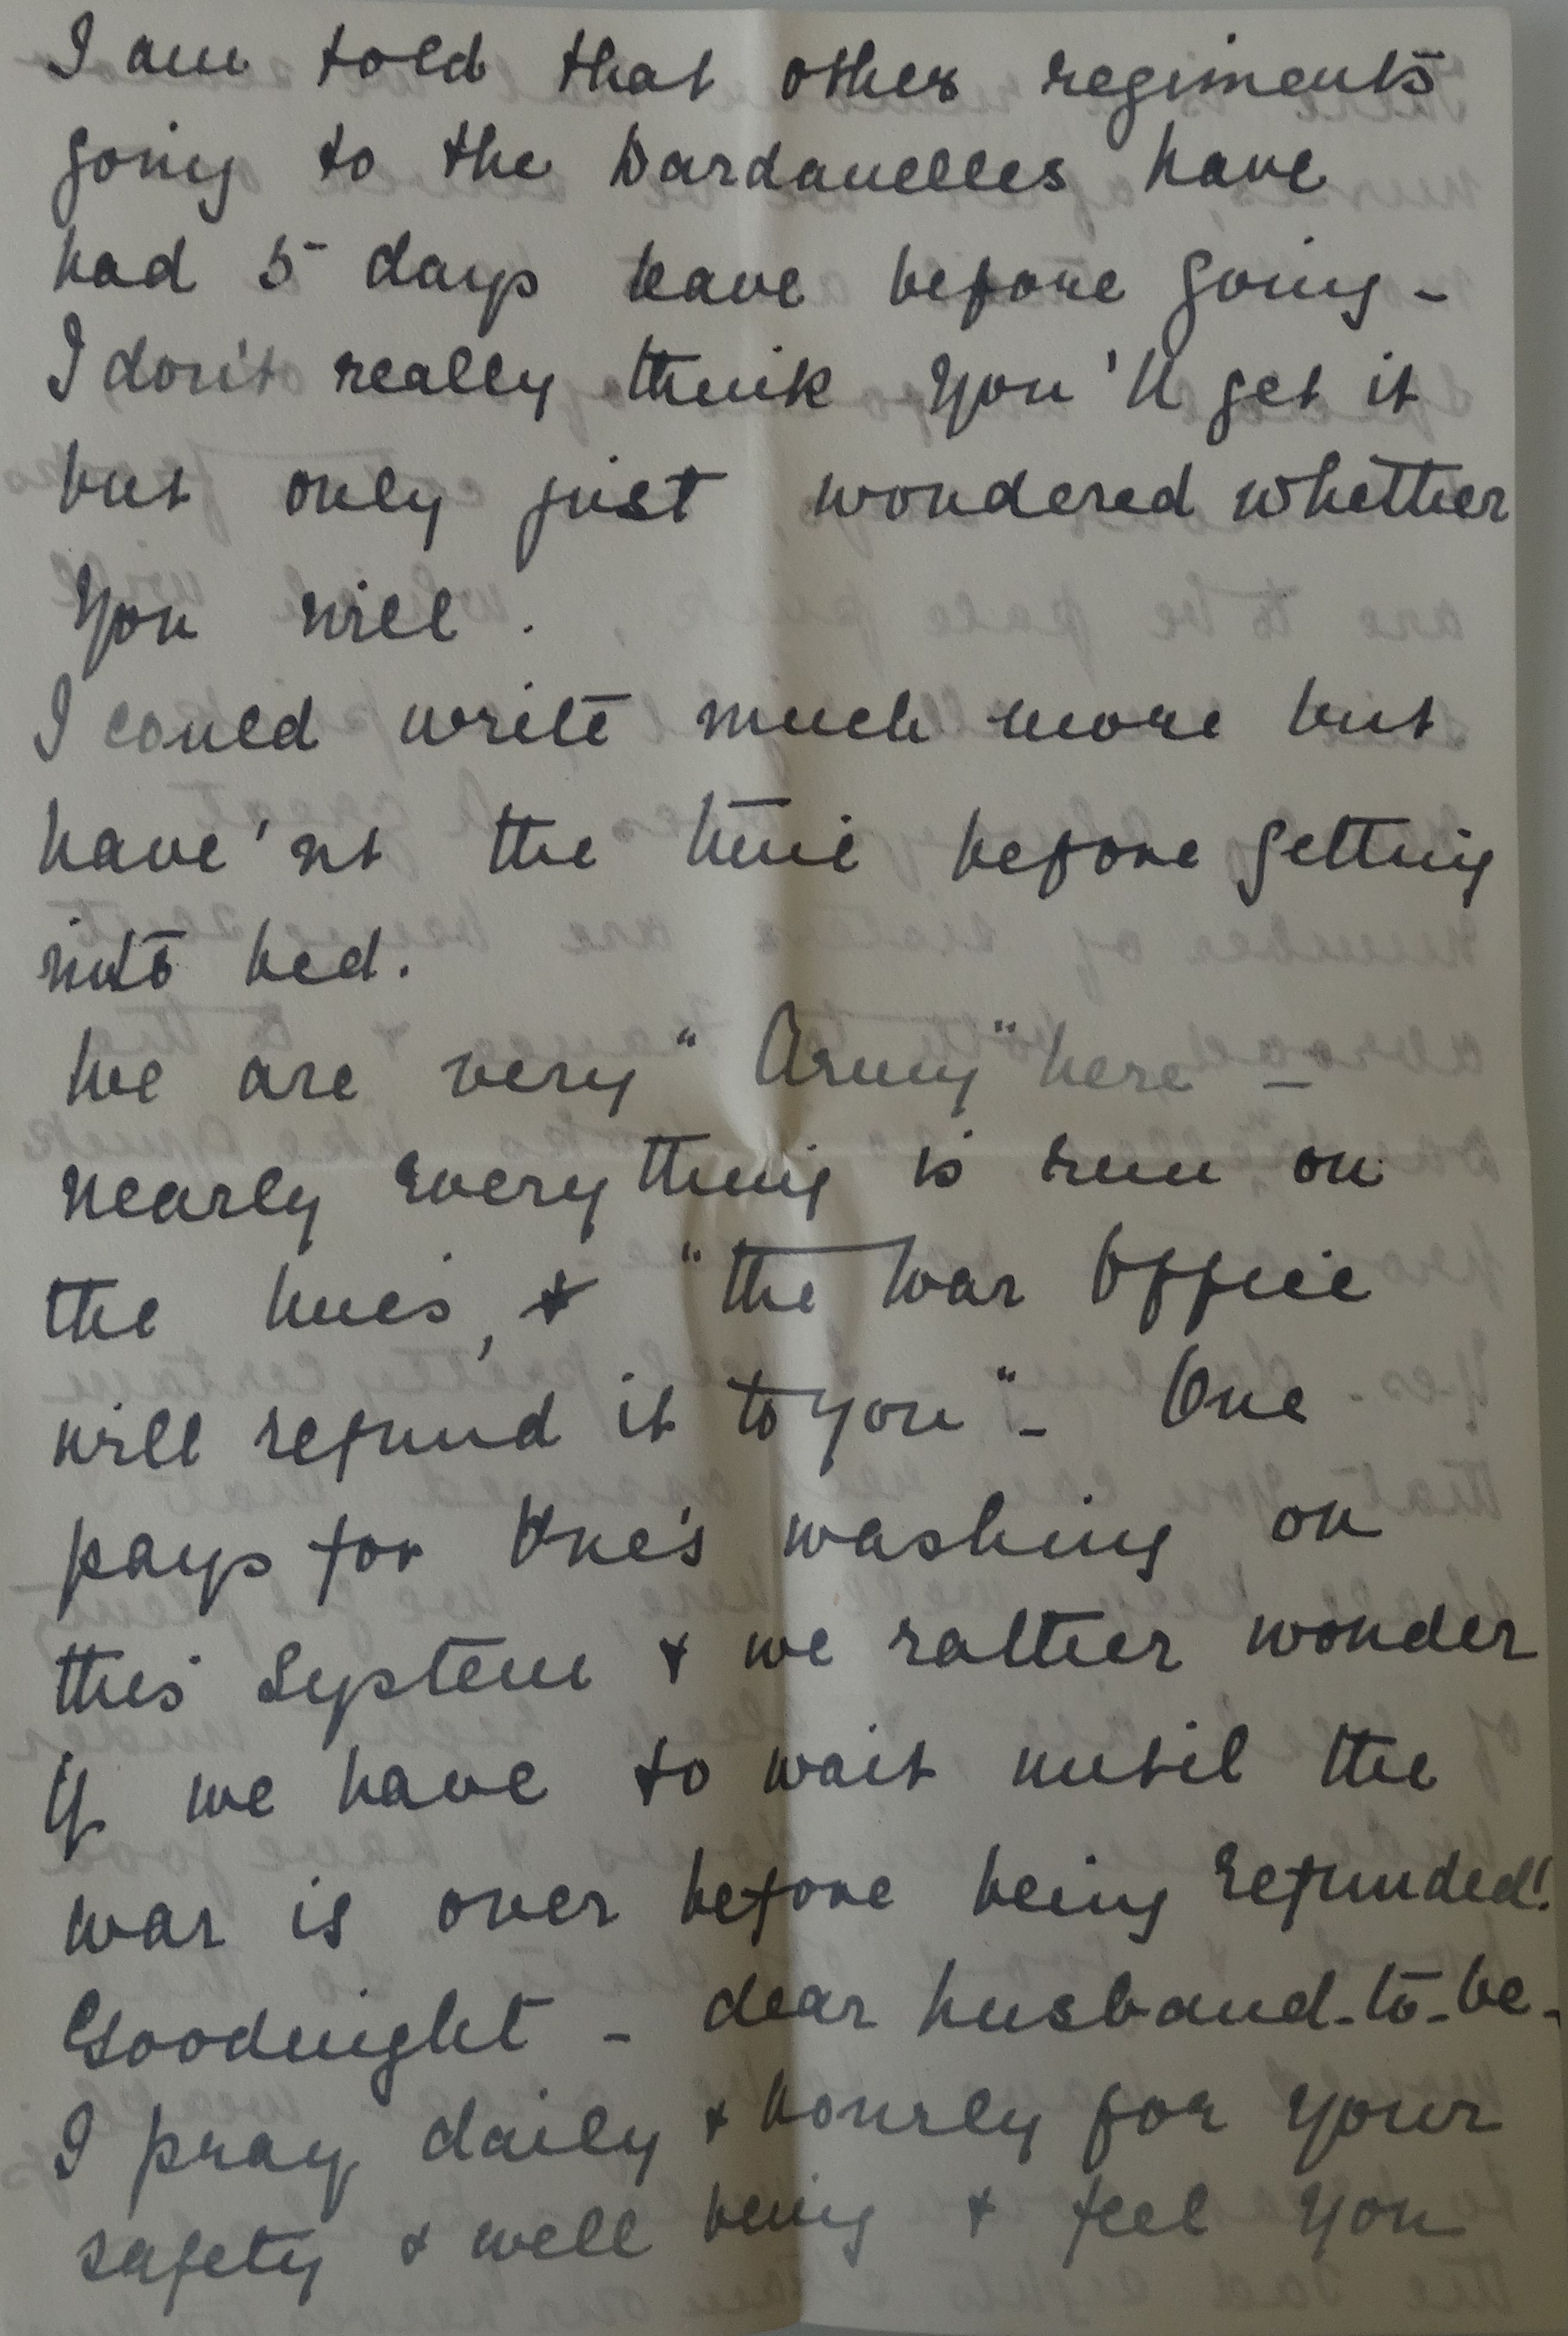 I am told that other regiments
going to the Dardanelles have
had 5 days leave before going -
I don't really think you'll get it
but only just wondered whether
you will.
I could write much more but
have'nt the time before getting
into bed.
We are very "Army" here -
nearly everything is run on
the lines, & "the War Office
will refund it to you" - One
pays for One's washing on
this System & we rather wonder
if we have to wait until the
war is over before being refunded!
Goodnight - dear husband-to-be -
I pray daily & hourly for your
safety & well being & feel you